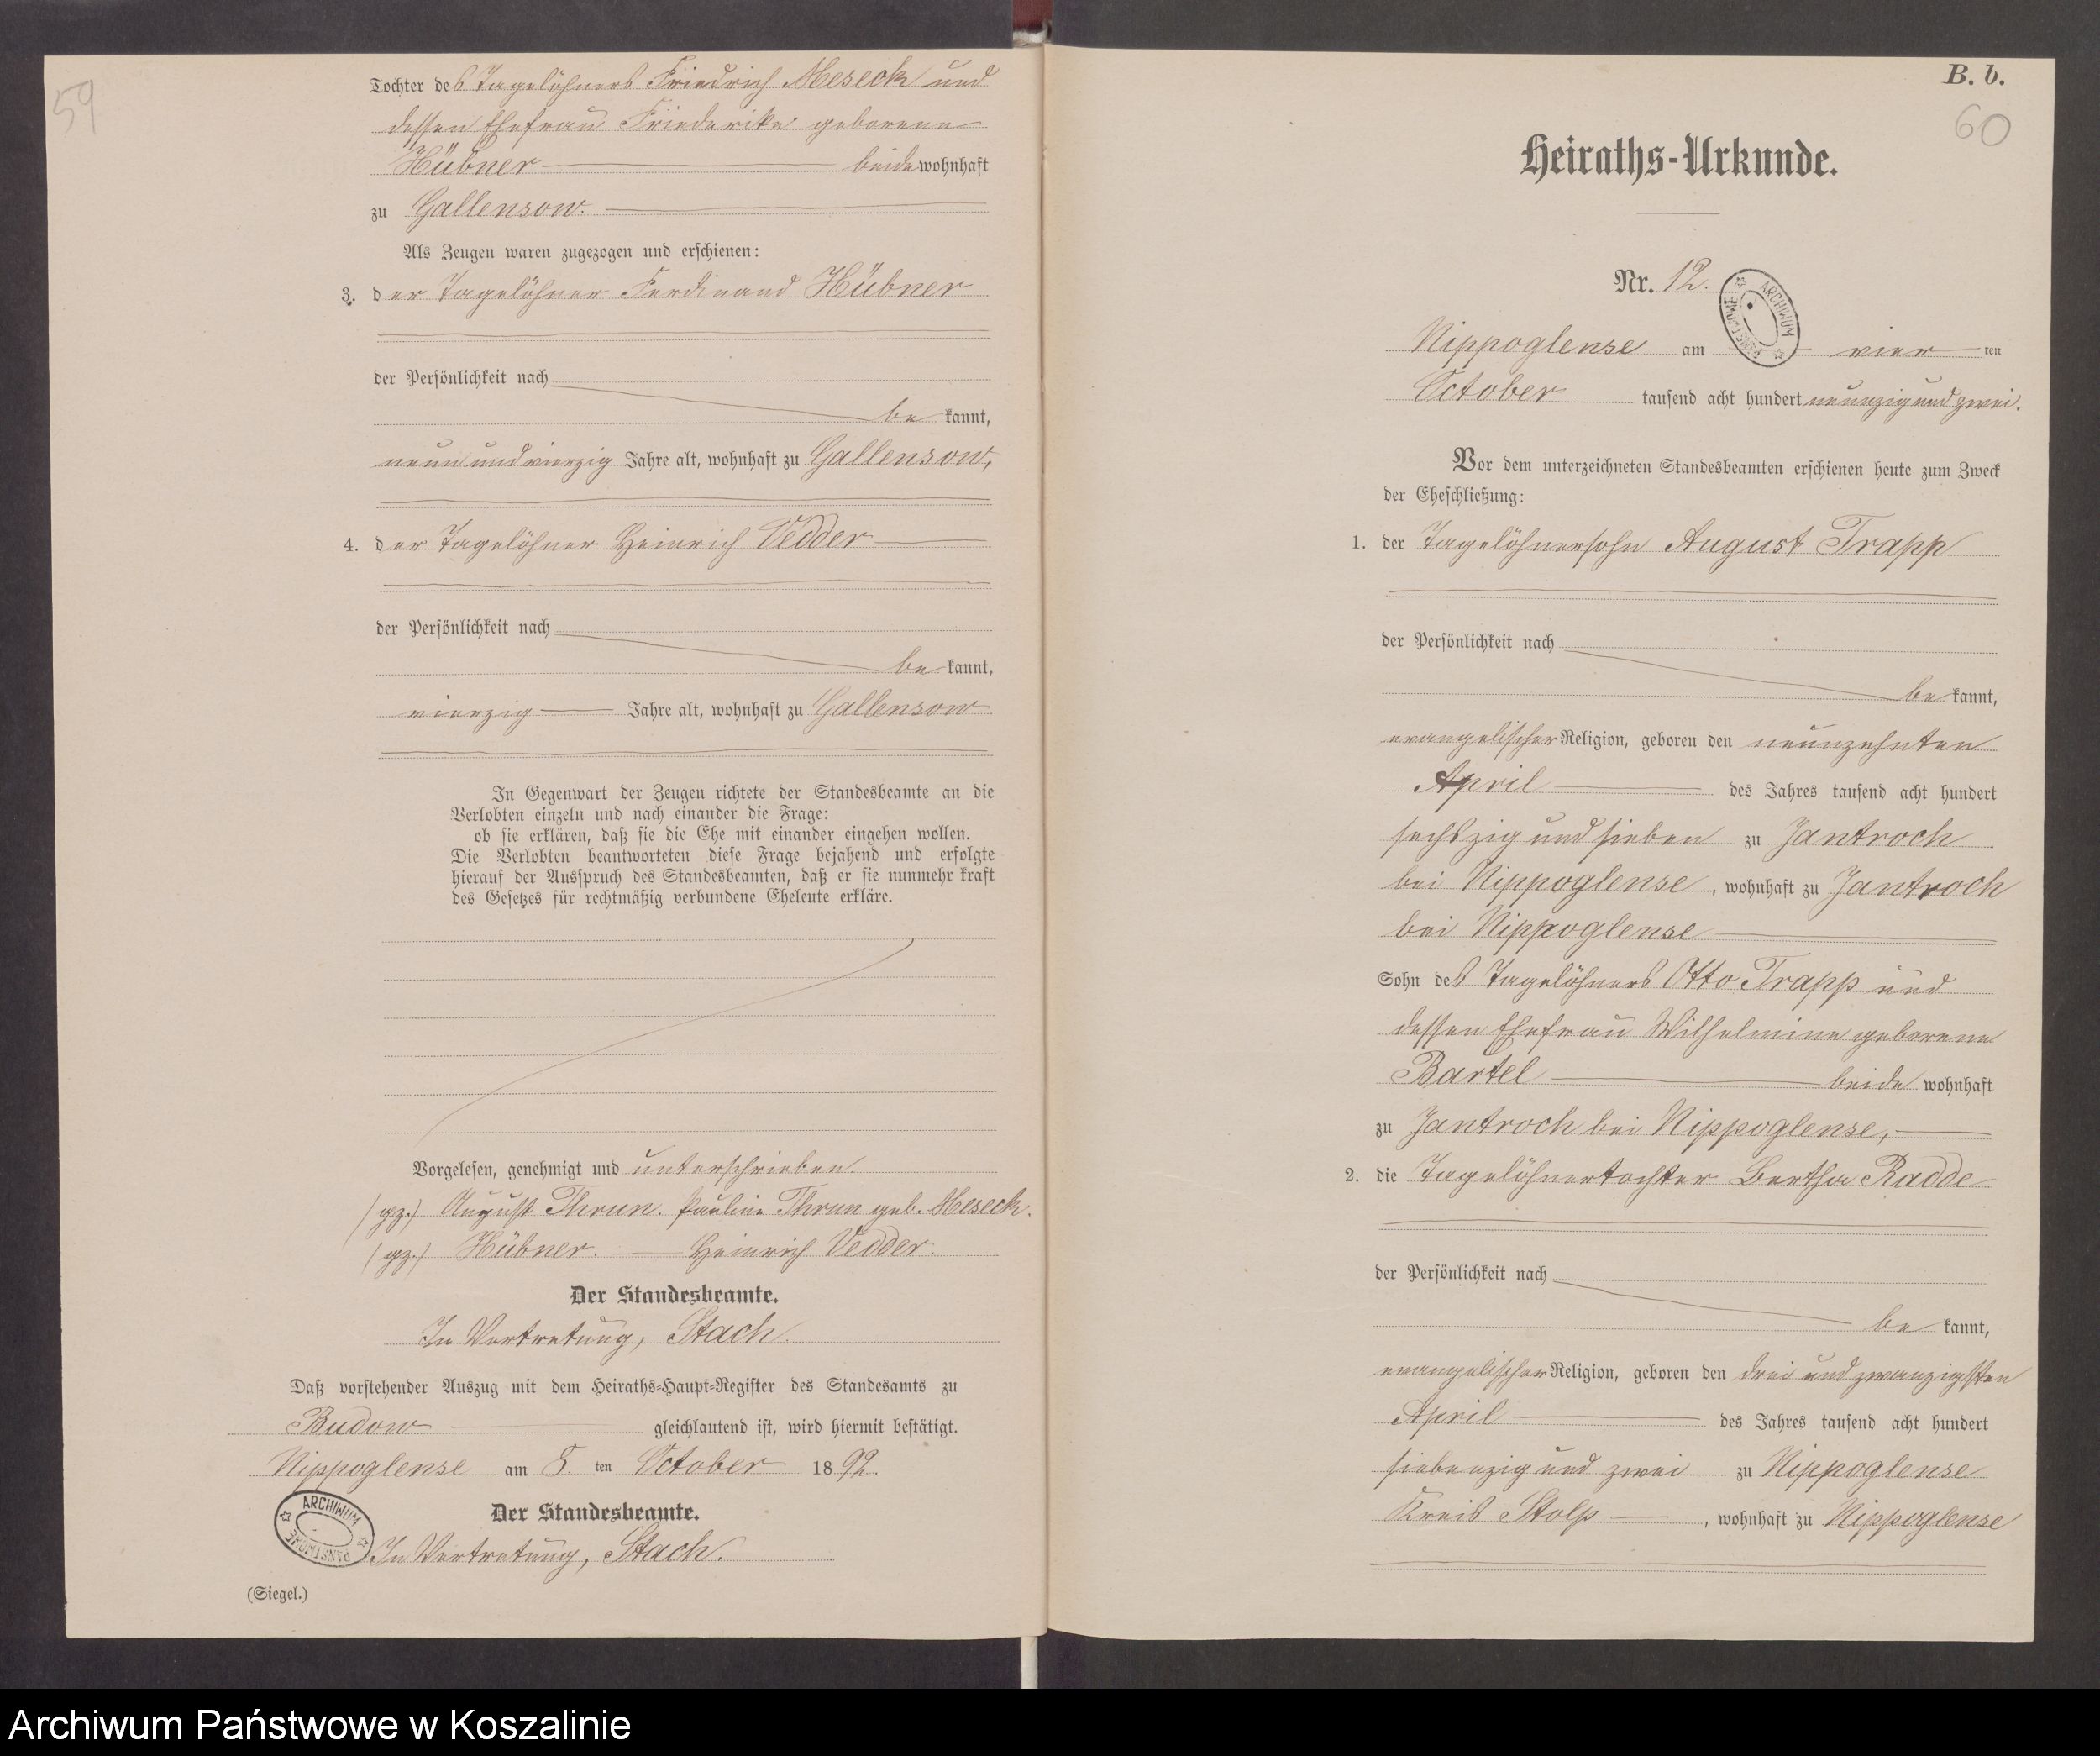 59
Tochter des Tagelöhners Friedrich Meseck und
dessen Ehefrau Friederike geborene
Hübner beide wohnhaft
zu Gallensow.
Als Zeugen waren zugezogen und erschienen:
3. der Tagelöhner Ferdinand Hübner
der Persönlichkeit nach
be kannt,
neun und vierzig Jahre alt, wohnhaft zu Gallensow,
4. der Tagelöhner Heinrich Vedder
der Persönlichkeit nach
be kannt,
vierzig Jahre alt, wohnhaft zu Gallensow
In Gegenwart der Zeugen richtete der Standesbeamte an die
Verlobten einzeln und nach einander die Frage:
ob sie erklären, daß sie die Ehe mit einander eingehen wollen.
Die Verlobten beantworteten diese Frage bejahend und erfolgte
hierauf der Ausspruch des Standesbeamten, daß er sie nunmehr kraft
des Gesetzes für rechtmäßig verbundene Eheleute erkläre.
Vorgelesen, genehmigt und unterschrieben.
(gz.) August Thrun. Pauline Thrun geb. Meseck.
(gz.) Hübner. Heinrich Vedder.
Der Standesbeamte.
In Vertretung, Stach.
Daß vorstehender Auszug mit dem Heiraths-Haupt-Register des Standesamts zu
Budow gleichlautend ist, wird hiermit bestätigt.
Nippoglense am 5. ten October 1892.
Der Standesbeamte.
In Vertretung, Stach.
ARCHIWUM PAŃSTWOWE
(Siegel.)
B. b.
60
Heiraths-Urkunde.
Nr. 12.
ARCHIWUM PAŃSTWOWE
Nippoglense am vier ten
October tausend acht hundert neunzig und zwei.
Vor dem unterzeichneten Standesbeamten erschienen heute zum Zweck
der Eheschließung:
1. der Tagelöhnersohn August Trapp
der Persönlichkeit nach
be kannt,
evangelischer Religion, geboren den neunzehnten
April des Jahres tausend acht hundert
sechszig und sieben zu Jantroch
bei Nippoglense, wohnhaft zu Jantroch
bei Nippoglense
Sohn des Tagelöhners Otto Trapp und
dessen Ehefrau Wilhelmine geborene
Bartel beide wohnhaft
zu Jantroch bei Nippoglense,
2. die Tagelöhnertochter Bertha Radde
der Persönlichkeit nach
be kannt,
evangelischer Religion, geboren den drei und zwanzigsten
April des Jahres tausend acht hundert
siebenzig und zwei zu Nippoglense
Kreis Stolp, wohnhaft zu Nippoglense
Archiwum Państwowe w Koszalinie